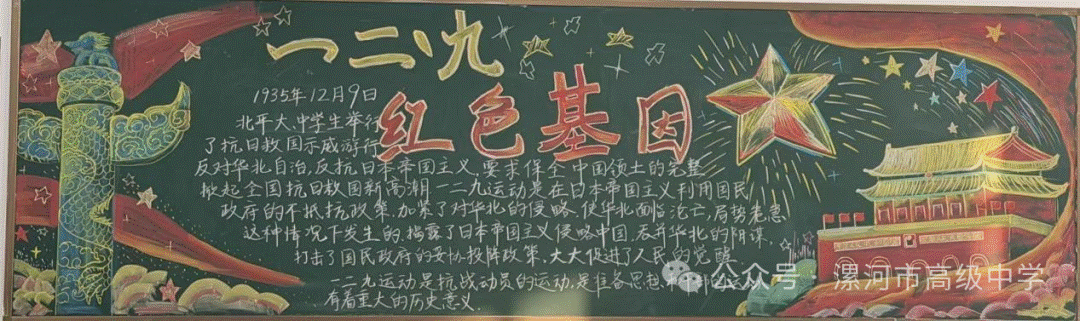 一二·九
红色基因
1935年12月9日
北平大、中学生举行
了抗日救国示威游行
反对华北自治,反抗日本帝国主义,要求保全中国领土的完整
掀起全国抗日救国新高潮.一二九运动是在日本帝国主义利用国民
政府的不抵抗政策,加紧了对华北的侵略.使华北面临沦亡,局势危急
这种情况下发生的,揭露了日本帝国主义侵略中国,吞并华北的阴谋.
打击了国民政府的妥协投降政策,大大促进了人民的觉醒
一二九运动是抗战动员的运动,是准备思想
有着重大的历史意义.
公众号 漯河市高级中学